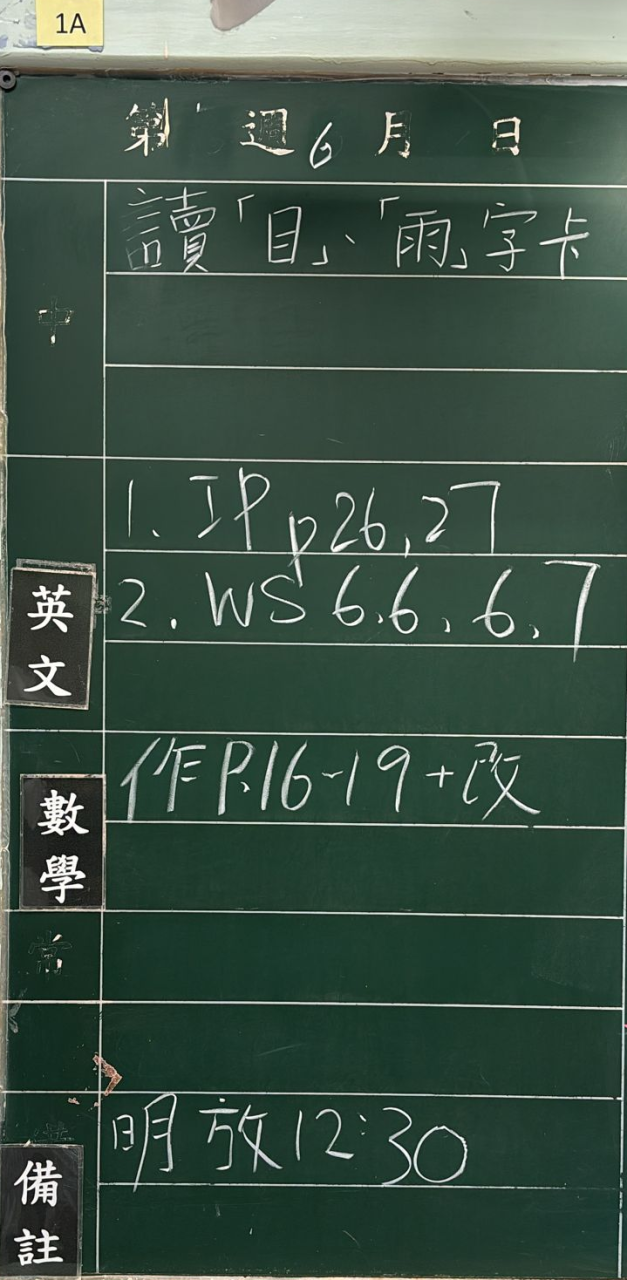 1A
第 週 6 月 日
中
讀「目」、「雨」字卡
英文
1. IP p26, 27
2. WS 6.6, 6.7
數學
作P.16-19+改
常
備註
明放12:30